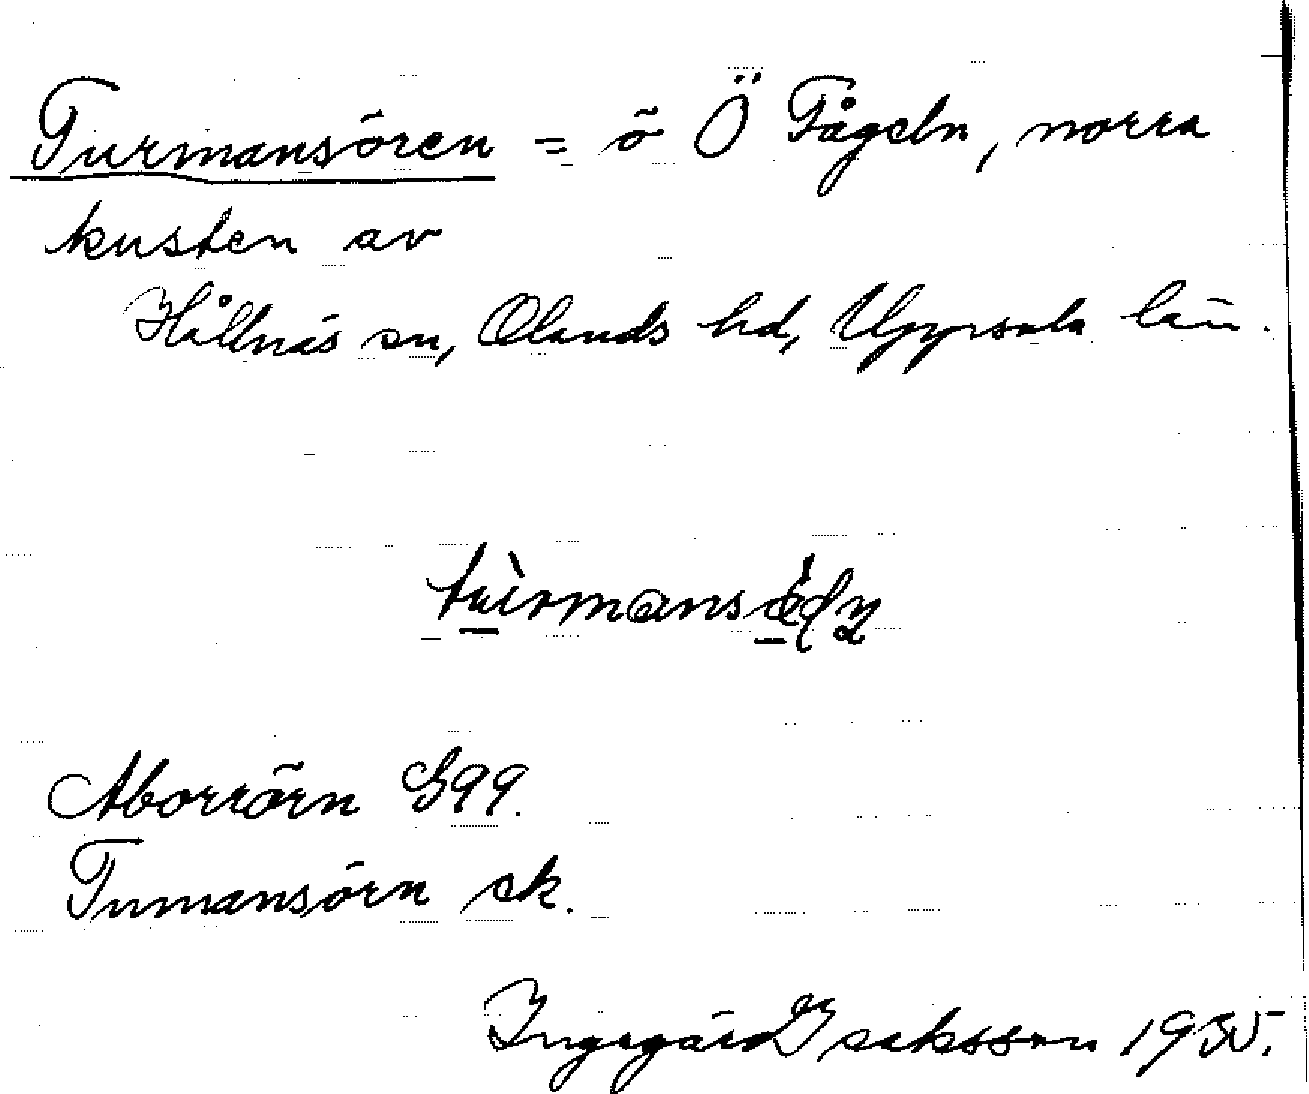 Turmansören = ö Ö Fågeln, norra
kusten av
Hållnäs sn, Olands hd, Uppsala län.
Aborrörn G99.
Tumansörn ek.
Ingegärd Isaksson 1935.